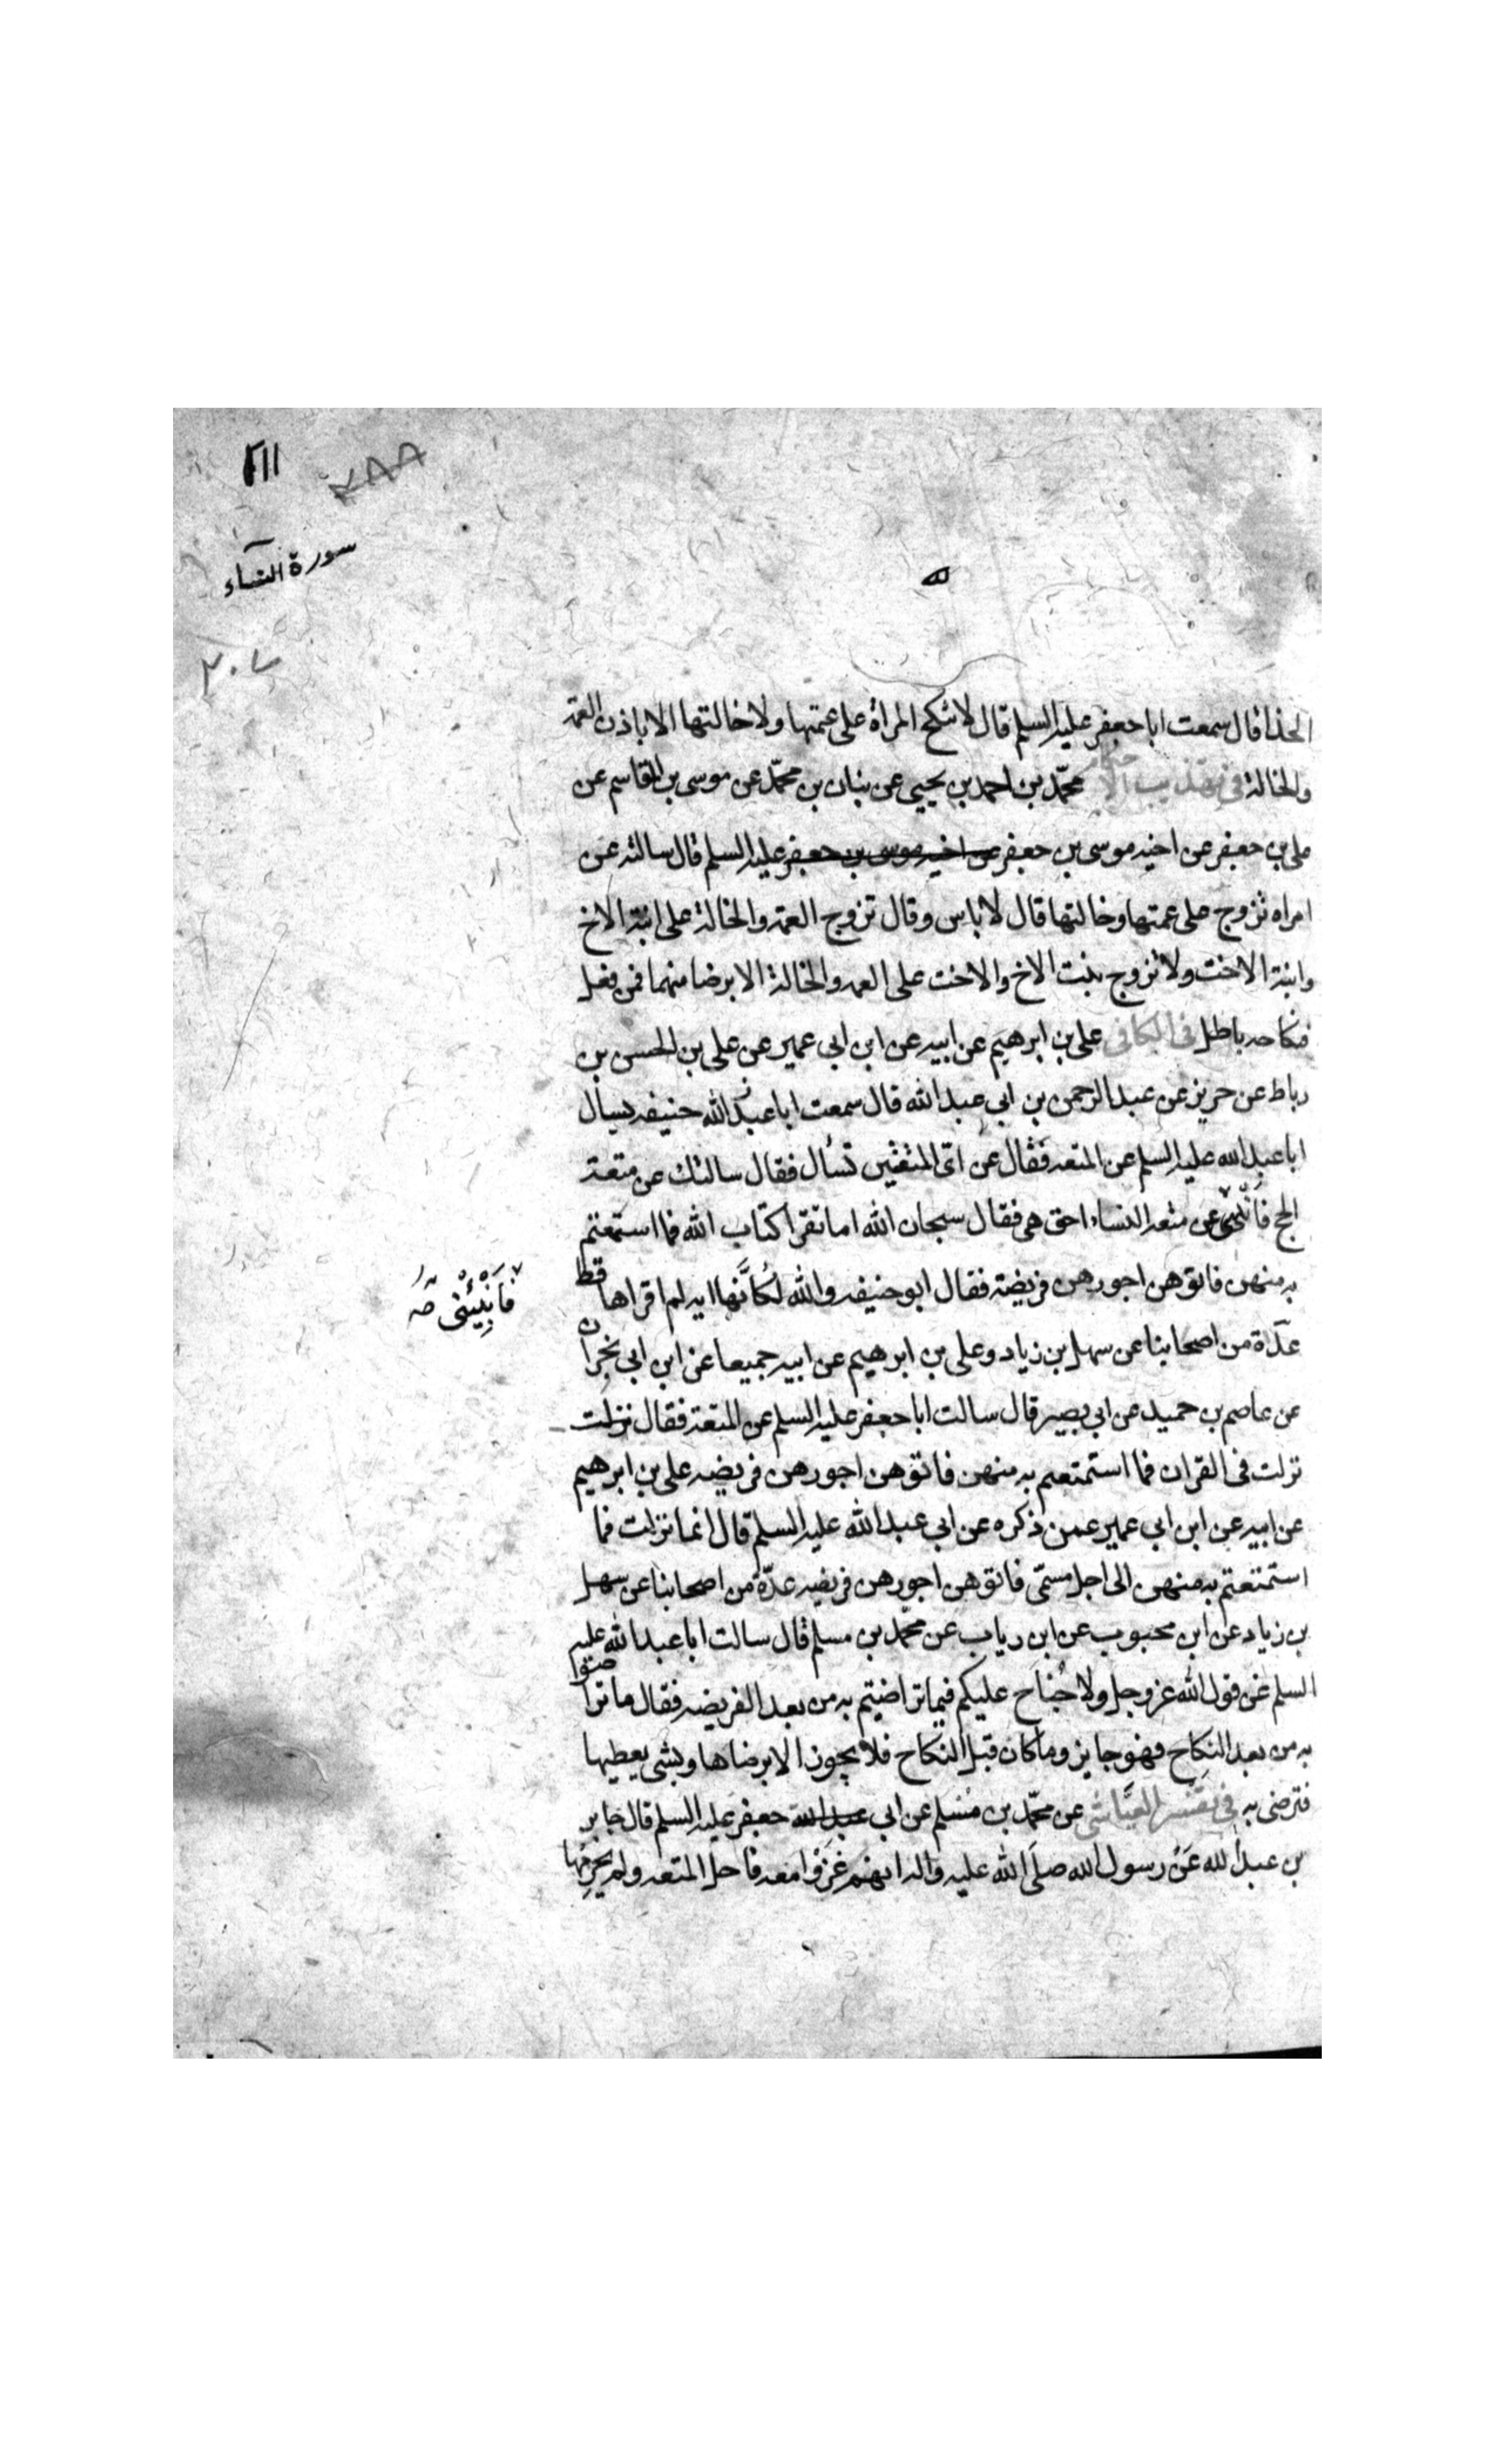 ٢١١
٢٨٨
سورة النساء
٣٠٧
الحذا قال سمعت ابا جعفر عليه السلم قال لا تنكح المراة على عمتها ولا خالتها الا باذن العمة
والخالة في تهذيب الاحكام محمّد بن احمد بن يحيى عن بنان بن محمّد عن موسى بن القاسم عن
على بن جعفر عن اخيه موسى بن جعفر عن اخيه موسى بن جعفر عليه السلم قال سالته عن
امراه تزوج على عمتها وخالتها قال لا باس وقال تزوج العمة والخالة على ابنة الاخ
وابنة الاخت ولا تزوج بنت الاخ والاخت على العمه والخالة الا برضا منهما فمن فعل
فنكاحه باطل في الكافى على بن ابرهيم عن ابيه عن ابن ابي عمير عن على بن الحسن بن
رباط عن حريز عن عبد الرحمن بن ابي عبد الله قال سمعت ابا عبد الله حنيفه يسال
ابا عبد الله عليه السلم عن المتعه فقال عن اىّ المتعتين تسأل فقال سالتك عن متعة
الحج عن متعه النساء احق هى فقال سبحان الله اما تقرا كتاب الله فما استمتعتم
به منهن فاتوهن اجورهن فريضة فقال ابو حنيفه والله لكأنّها ايه لم اقراها قط
فَأَنْبِئْنِى صَه
عدّة من اصحابنا عن سهل بن زياد وعلى بن ابرهيم عن ابيه جميعا عن ابن ابي نجران
عن عاصم بن حميد عن ابي بصير قال سالت ابا جعفر عليه السلم عن المتعة فقال نزلت
نزلت فى القران فما استمتعتم به منهن فاتوهن اجورهن فريضه على بن ابرهيم
عن ابيه عن ابن ابي عمير عمن ذكره عن ابي عبد الله عليه السلم قال انما نزلت فما
استمتعتم به منهن الى اجل مسمّى فاتوهن اجورهن فريضه عدّة من اصحابنا عن سهل
بن زياد عن ابن محبوب عن ابن رياب عن محمّد بن مسلم قال سالت ابا عبد الله عليه
السلم عن قول الله عز وجل ولا جُناح عليكم فيما تراضيتم به من بعد الفريضه فقال ما تراضوا
به من بعد النكاح فهو جايز وما كان قبل النكاح فلا يجوز الا برضاها وبشى يعطيها
فترضى به فى تفسير العيّاشى عن محمّد بن مسلم عن ابي عبد الله جعفر عليه السلم قال جابر
بن عبد الله عن رسول الله صلّى الله عليه واله انهم غزوا معه فاحل المتعه ولم يحرّمها